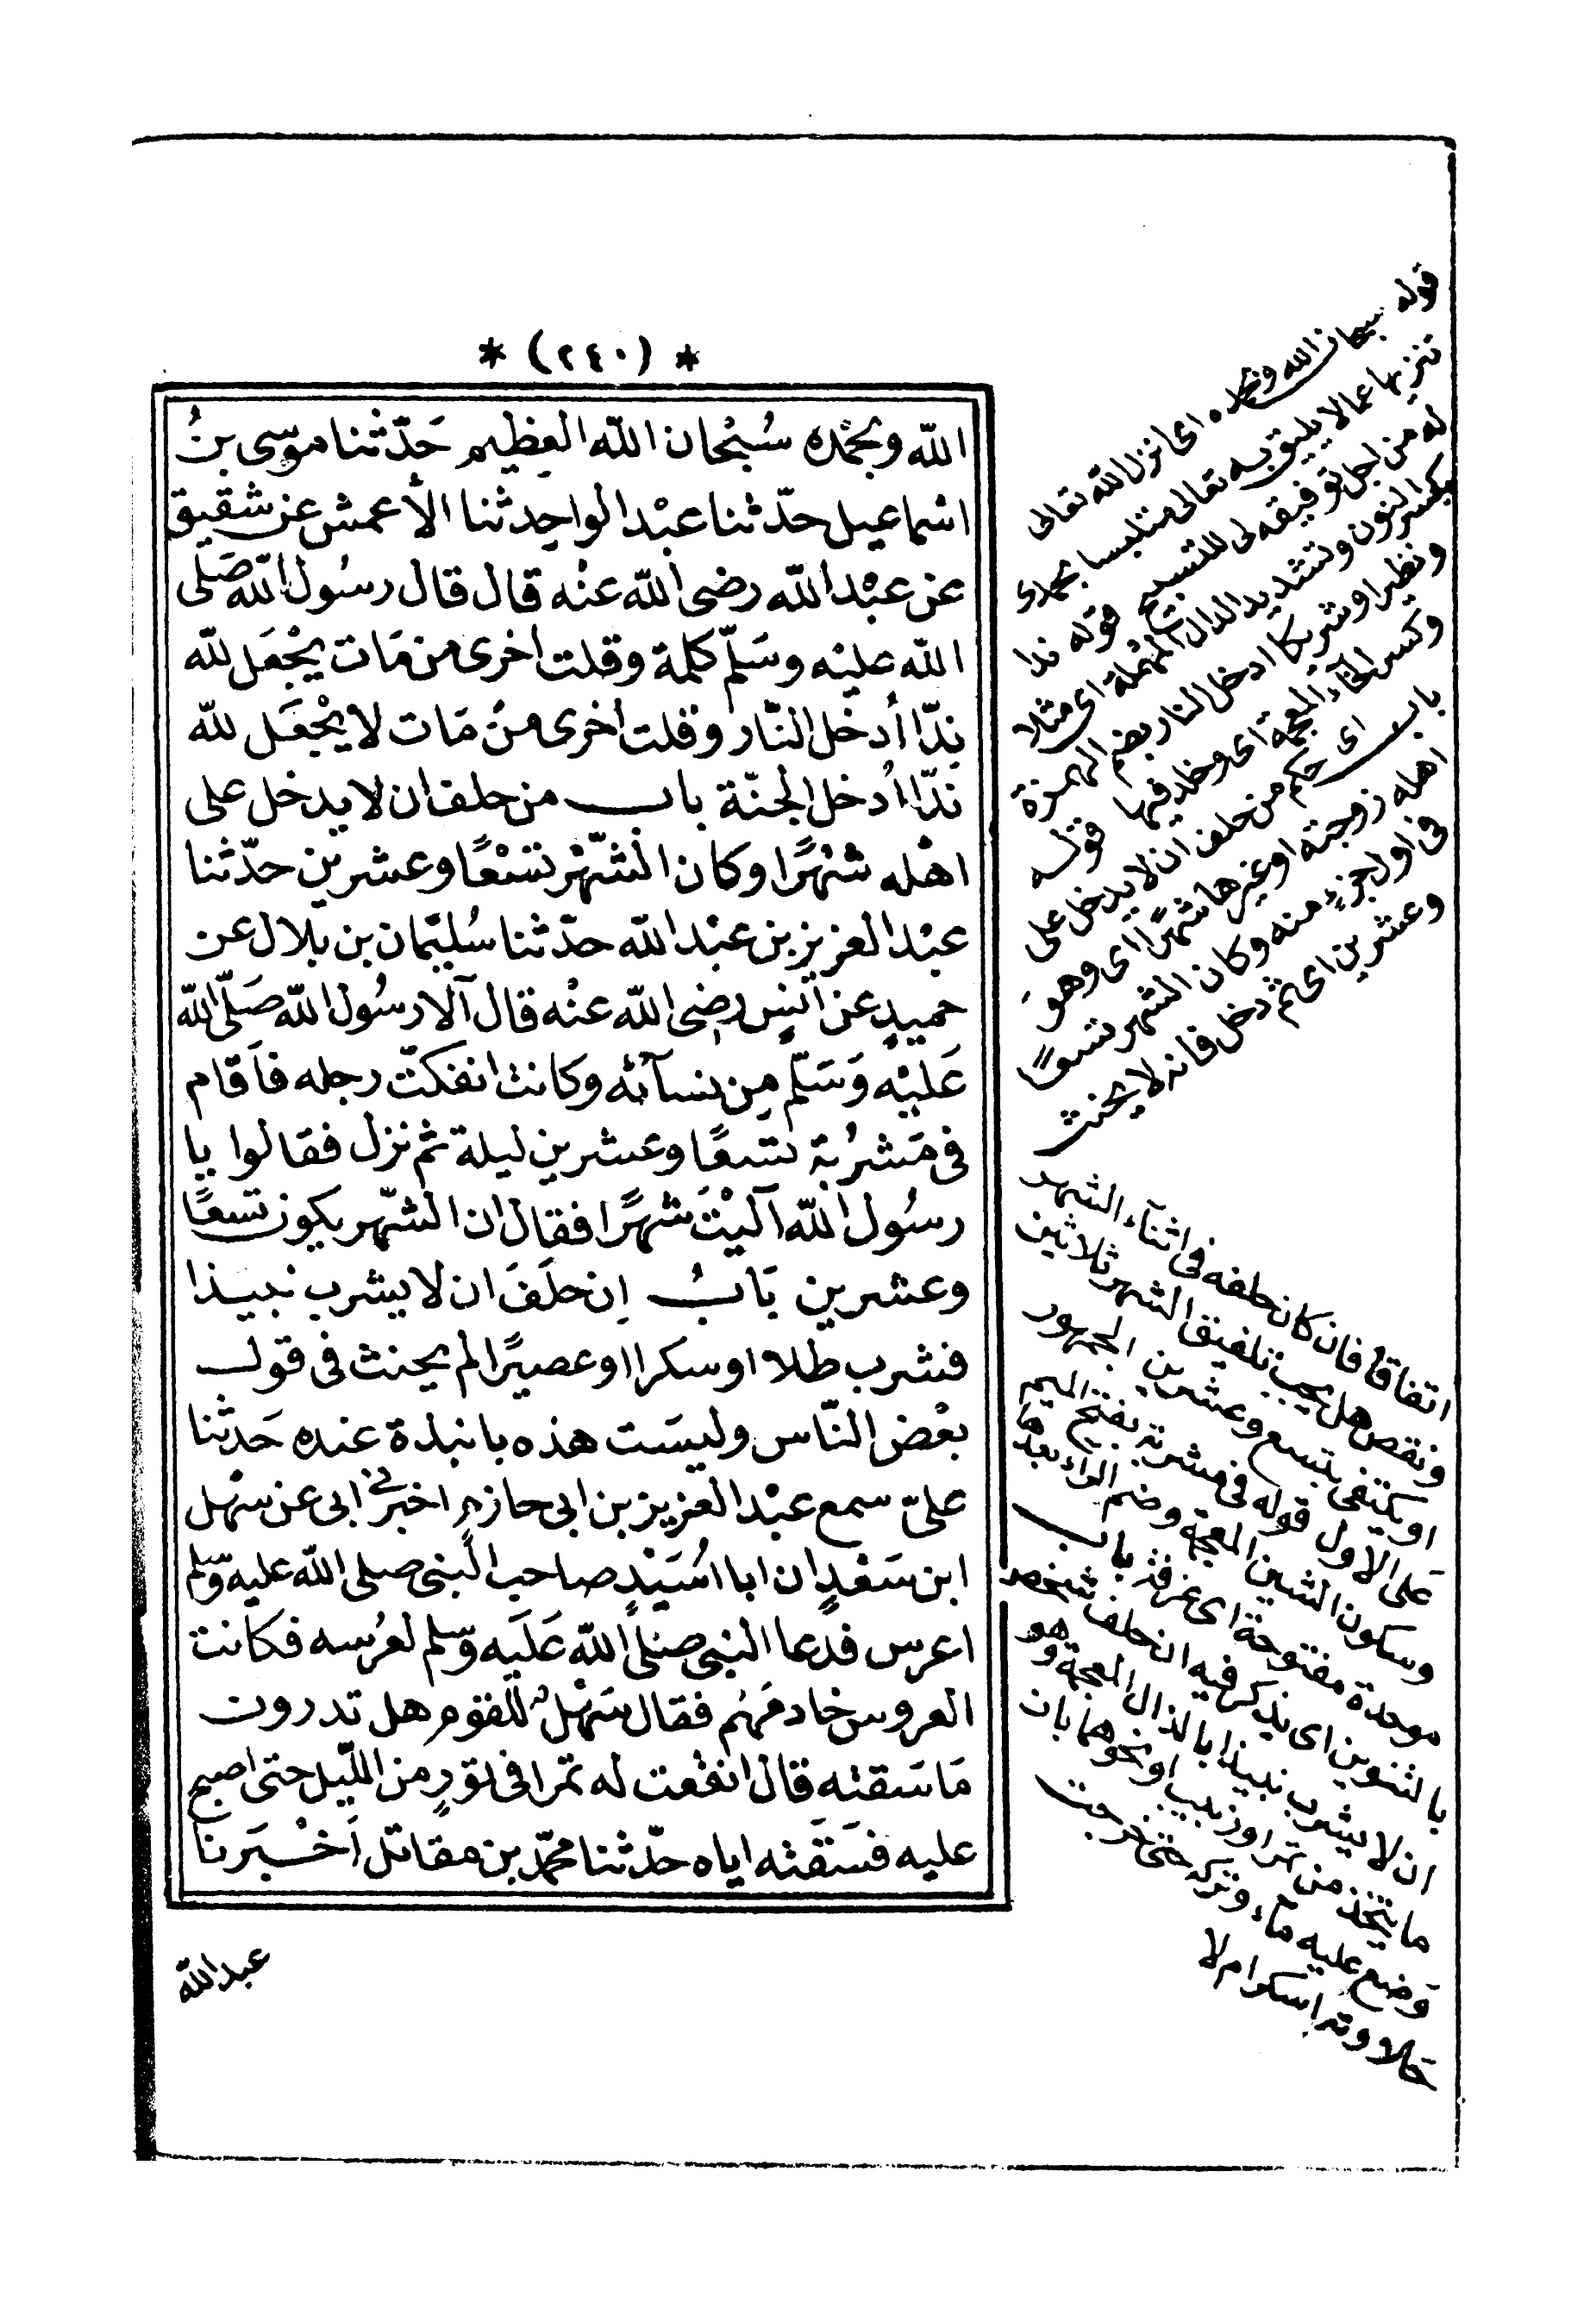 * (٢٤٠) *
الله وبحمده سُبْحان الله العظيم حَدّثنا موسى بنُ
اسماعيل حدّثنا عبْد الواحد ثنا الأعمش عن شقيق
عن عبْد الله رضى الله عنْه قال قال رسُول الله صَلى
الله عليْه وسَلّم كلمة وقلت اخرى من مَات يجْعَل لله
نِدّا أُدخل النّار وقلت أخرى منْ مَات لا يجْعَل لله
ندّا اُدخل الجنّة باب من حلف ان لا يدخل على
اهْله شهْرًا وكان الشّهْر تسْعًا وعشرين حدّثنا
عبْد العزيز بن عبْد الله حدّثنا سُليْمان بن بلال عن
حميدٍ عن أنسٍ رضى الله عنْه قال آلا رسُول الله صَلّى الله
عَليْه وَسَلّم مِن نسآئه وكانت انفكّت رجله فأقام
فى مَشرُبة تسعًا وعشرين ليلة ثم نزل فقالوا يا
رسُول الله آليْتَ شهرًا فقال ان الشّهر يكون تسعًا
وعشرين بَابُ اِن حلَفَ ان لا يشرب نبيذا
فشرب طلاء او سكرا او عصيرًا لم يحنث فى قول
بعْض النّاس وليسَت هذه بانبذة عنده حَدثنا
علىّ سمع عبْد العزيز بن ابى حازم اخبرنى ابى عن سهْل
ابن سَعْدٍ ان ابا اُسَيْدٍ صاحب النبى صلى الله عليه وسلم
اعرس فدعا النبى صلى الله عَلَيه وسلم لعُرسه فكانت
العروس خادمَهُم فقال سَهْلٌ للقوم هل تدرون
مَا سَقته قال انقعت له تمرا فى تورٍ من اللّيل حتى اصبح
عليه فسَقَته اياه حدّثنا محمّد بن مقاتل أخْبَرنا
عبد الله
قوله سبحان الله وبحمده اى انزه الله تعالى
تنزيها عما لا يليق به تعالى متلبسا بحمدى
له من اجل توفيقه لى للتسبيح قوله ندا
بكسر النون وتشديد الدال المهملة اى مثلا
ونظيرا وشريكا ادخل النار بضم الهمزة
وكسر الخاء المعجمة اى وخلد فيها قوله
باب اى حكم من حلف ان لا يدخل على
اهله زوجته او غيرها شهرًا اى وهو
فى اول جزء منه وكان الشهر تسعًا
وعشرين اى ثم دخل فانه لا يحنث
اتفاقا فان كان حلفه فى اثنآء الشهر
ونقص هل يجب تلفيق الشهر ثلاثين
او يكتفى بتسع وعشرين الجمهور
على الاول قوله فى مشربة بفتح الميم
وسكون الشين المعجمة وضم الراء بعدها
موحدة مفتوحة اى غرفة باب
بالتنوين اى يذكر فيه ان حلف شخص
ان لا يشرب نبيذا بالذال المعجمة وهو
ما يتخذ من تمر او زبيب او نحوهما بان
وضع عليه ماء وتركه حتى خرجت
حلاوته اسكر ام لا